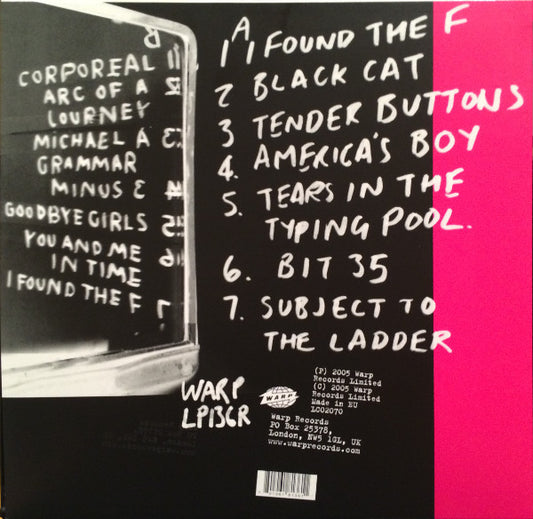 B
CORPOREAL 1
ARC OF A 2
JOURNEY
MICHAEL A 3
GRAMMAR
MINUS 3 4
GOODBYE GIRLS 5
YOU AND ME 6
IN TIME
I FOUND THE F 7
A
1 I FOUND THE F
2 BLACK CAT
3 TENDER BUTTONS
4. AMERICA'S BOY
5. TEARS IN THE
TYPING POOL.
6. BIT 35
7. SUBJECT TO
THE LADDER
WARP
LP136R
WARP
(P) 2005 Warp
Records Limited
(C) 2005 Warp
Records Limited
Made in EU
LC02070
Warp Records
PO Box 25378,
London, NW5 1GL, UK
www.warprecords.com